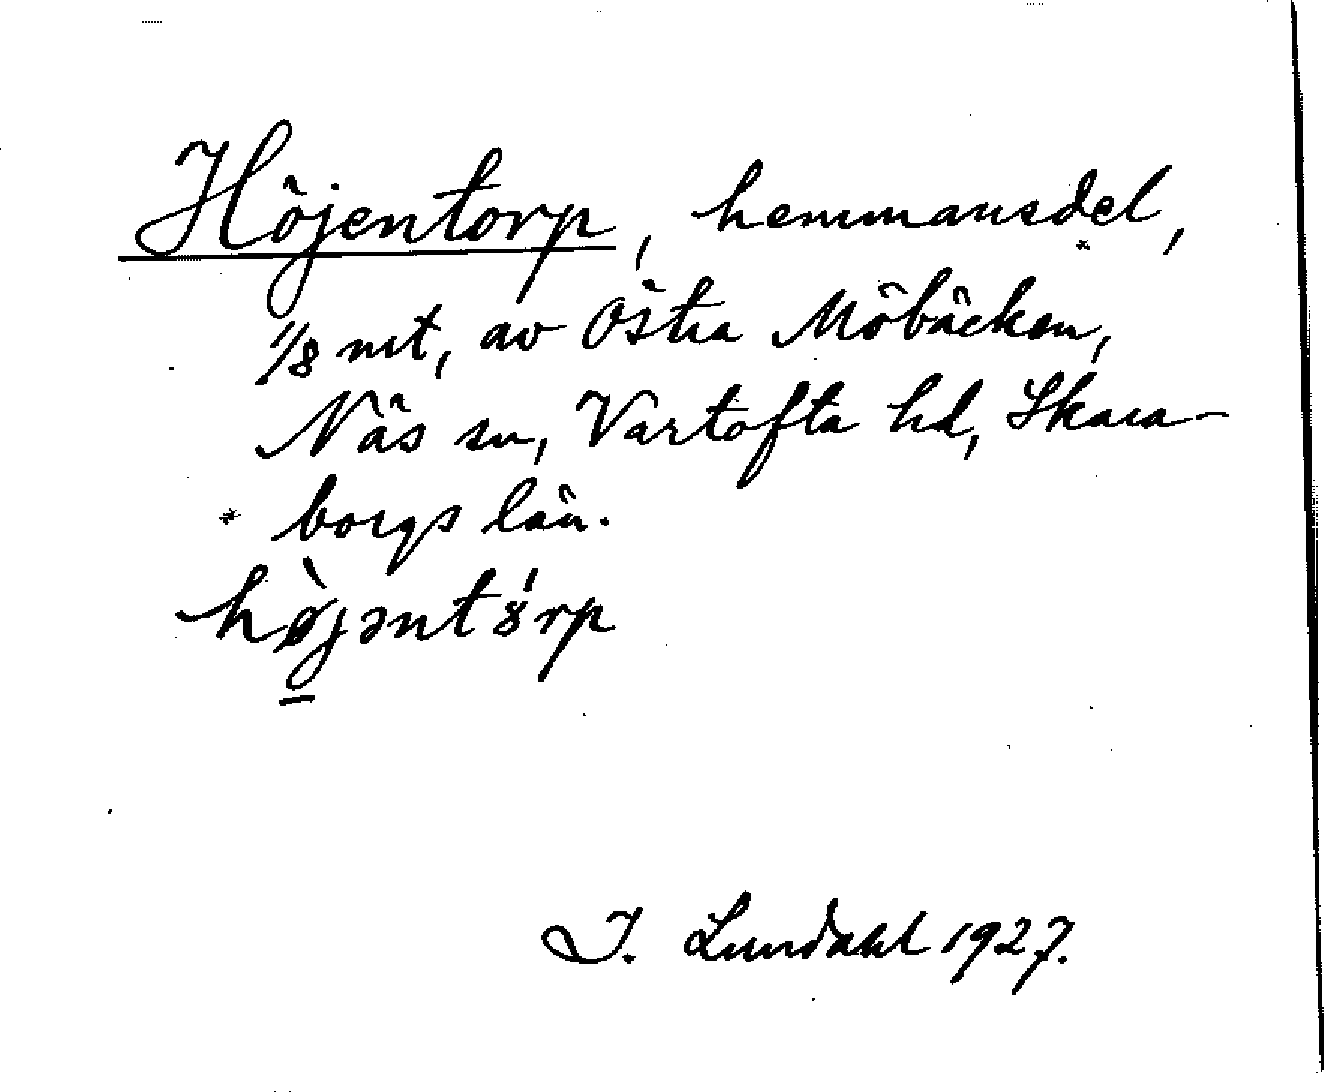 Höjentorp, hemmansdel,
1/8 mt, av Östra Möbäcken,
Näs sn, Vartofta hd, Skara-
borgs län.
hø̀jəntȣ́rp
I. Lundahl 1927.